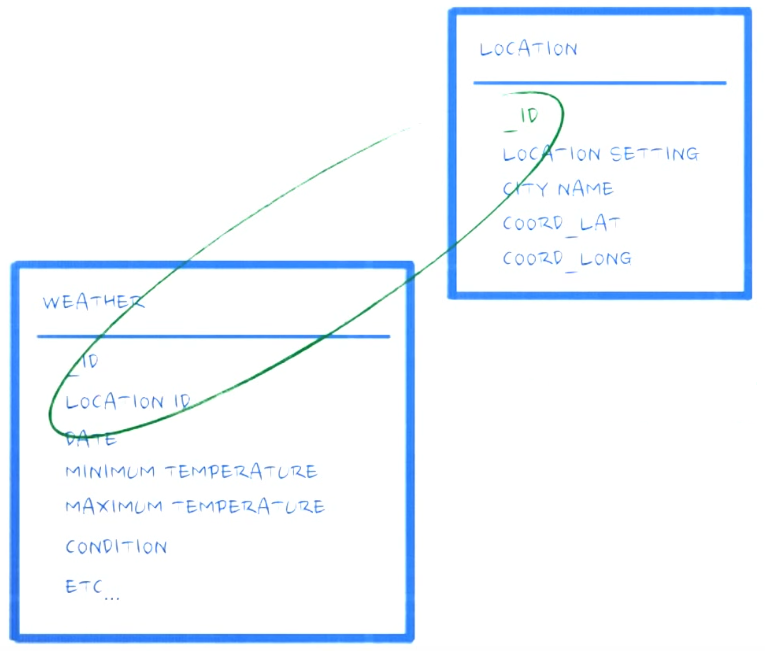 LOCATION
_ID
LOCATION SETTING
CITY NAME
COORD_LAT
COORD_LONG
WEATHER
_ID
LOCATION ID
DATE
MINIMUM TEMPERATURE
MAXIMUM TEMPERATURE
CONDITION
ETC...